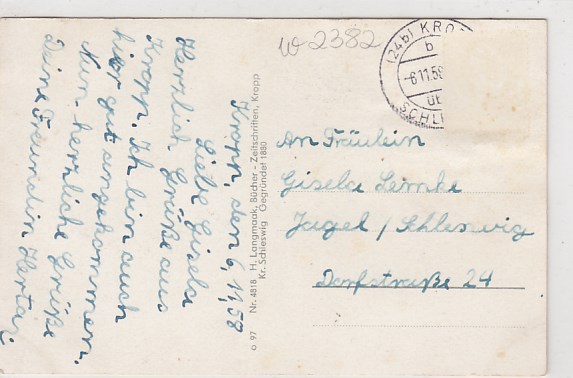 Kropp, den 6.11.58
Liebe Gisela
Herzlich Grüße aus
Kropp. Ich bin auch
hier gut angekommen.
Nun herzliche Grüße
Deine Freundin Herta.
o 97 Nr. 4818 H. Langmaak, Bücher - Zeitschriften, Kropp
Kr. Schleswig Gegründet 1880
W 2382
(24b) KRO
b
-6.11.58
ÜB
SCHLE
An Fräulein
Gisela Lemke
Jagel / Schleswig
Dorfstraße 24